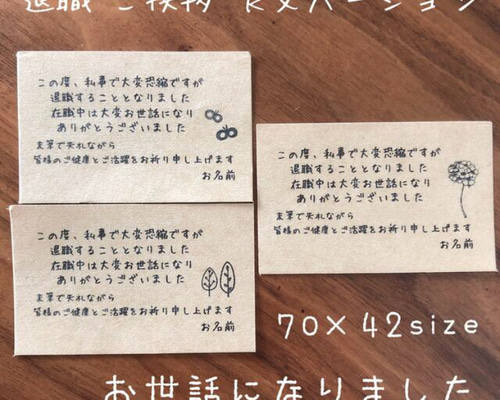 退職 ご挨拶 長文バージョン
この度、私事で大変恐縮ですが
退職することとなりました
在職中は大変お世話になり
ありがとうございました
末筆で失礼ながら
皆様のご健康とご活躍をお祈り申し上げます
お名前
この度、私事で大変恐縮ですが
退職することとなりました
在職中は大変お世話になり
ありがとうございました
末筆で失礼ながら
皆様のご健康とご活躍をお祈り申し上げます
お名前
この度、私事で大変恐縮ですが
退職することとなりました
在職中は大変お世話になり
ありがとうございました
末筆で失礼ながら
皆様のご健康とご活躍をお祈り申し上げます
お名前
70×42size
お世話になりました